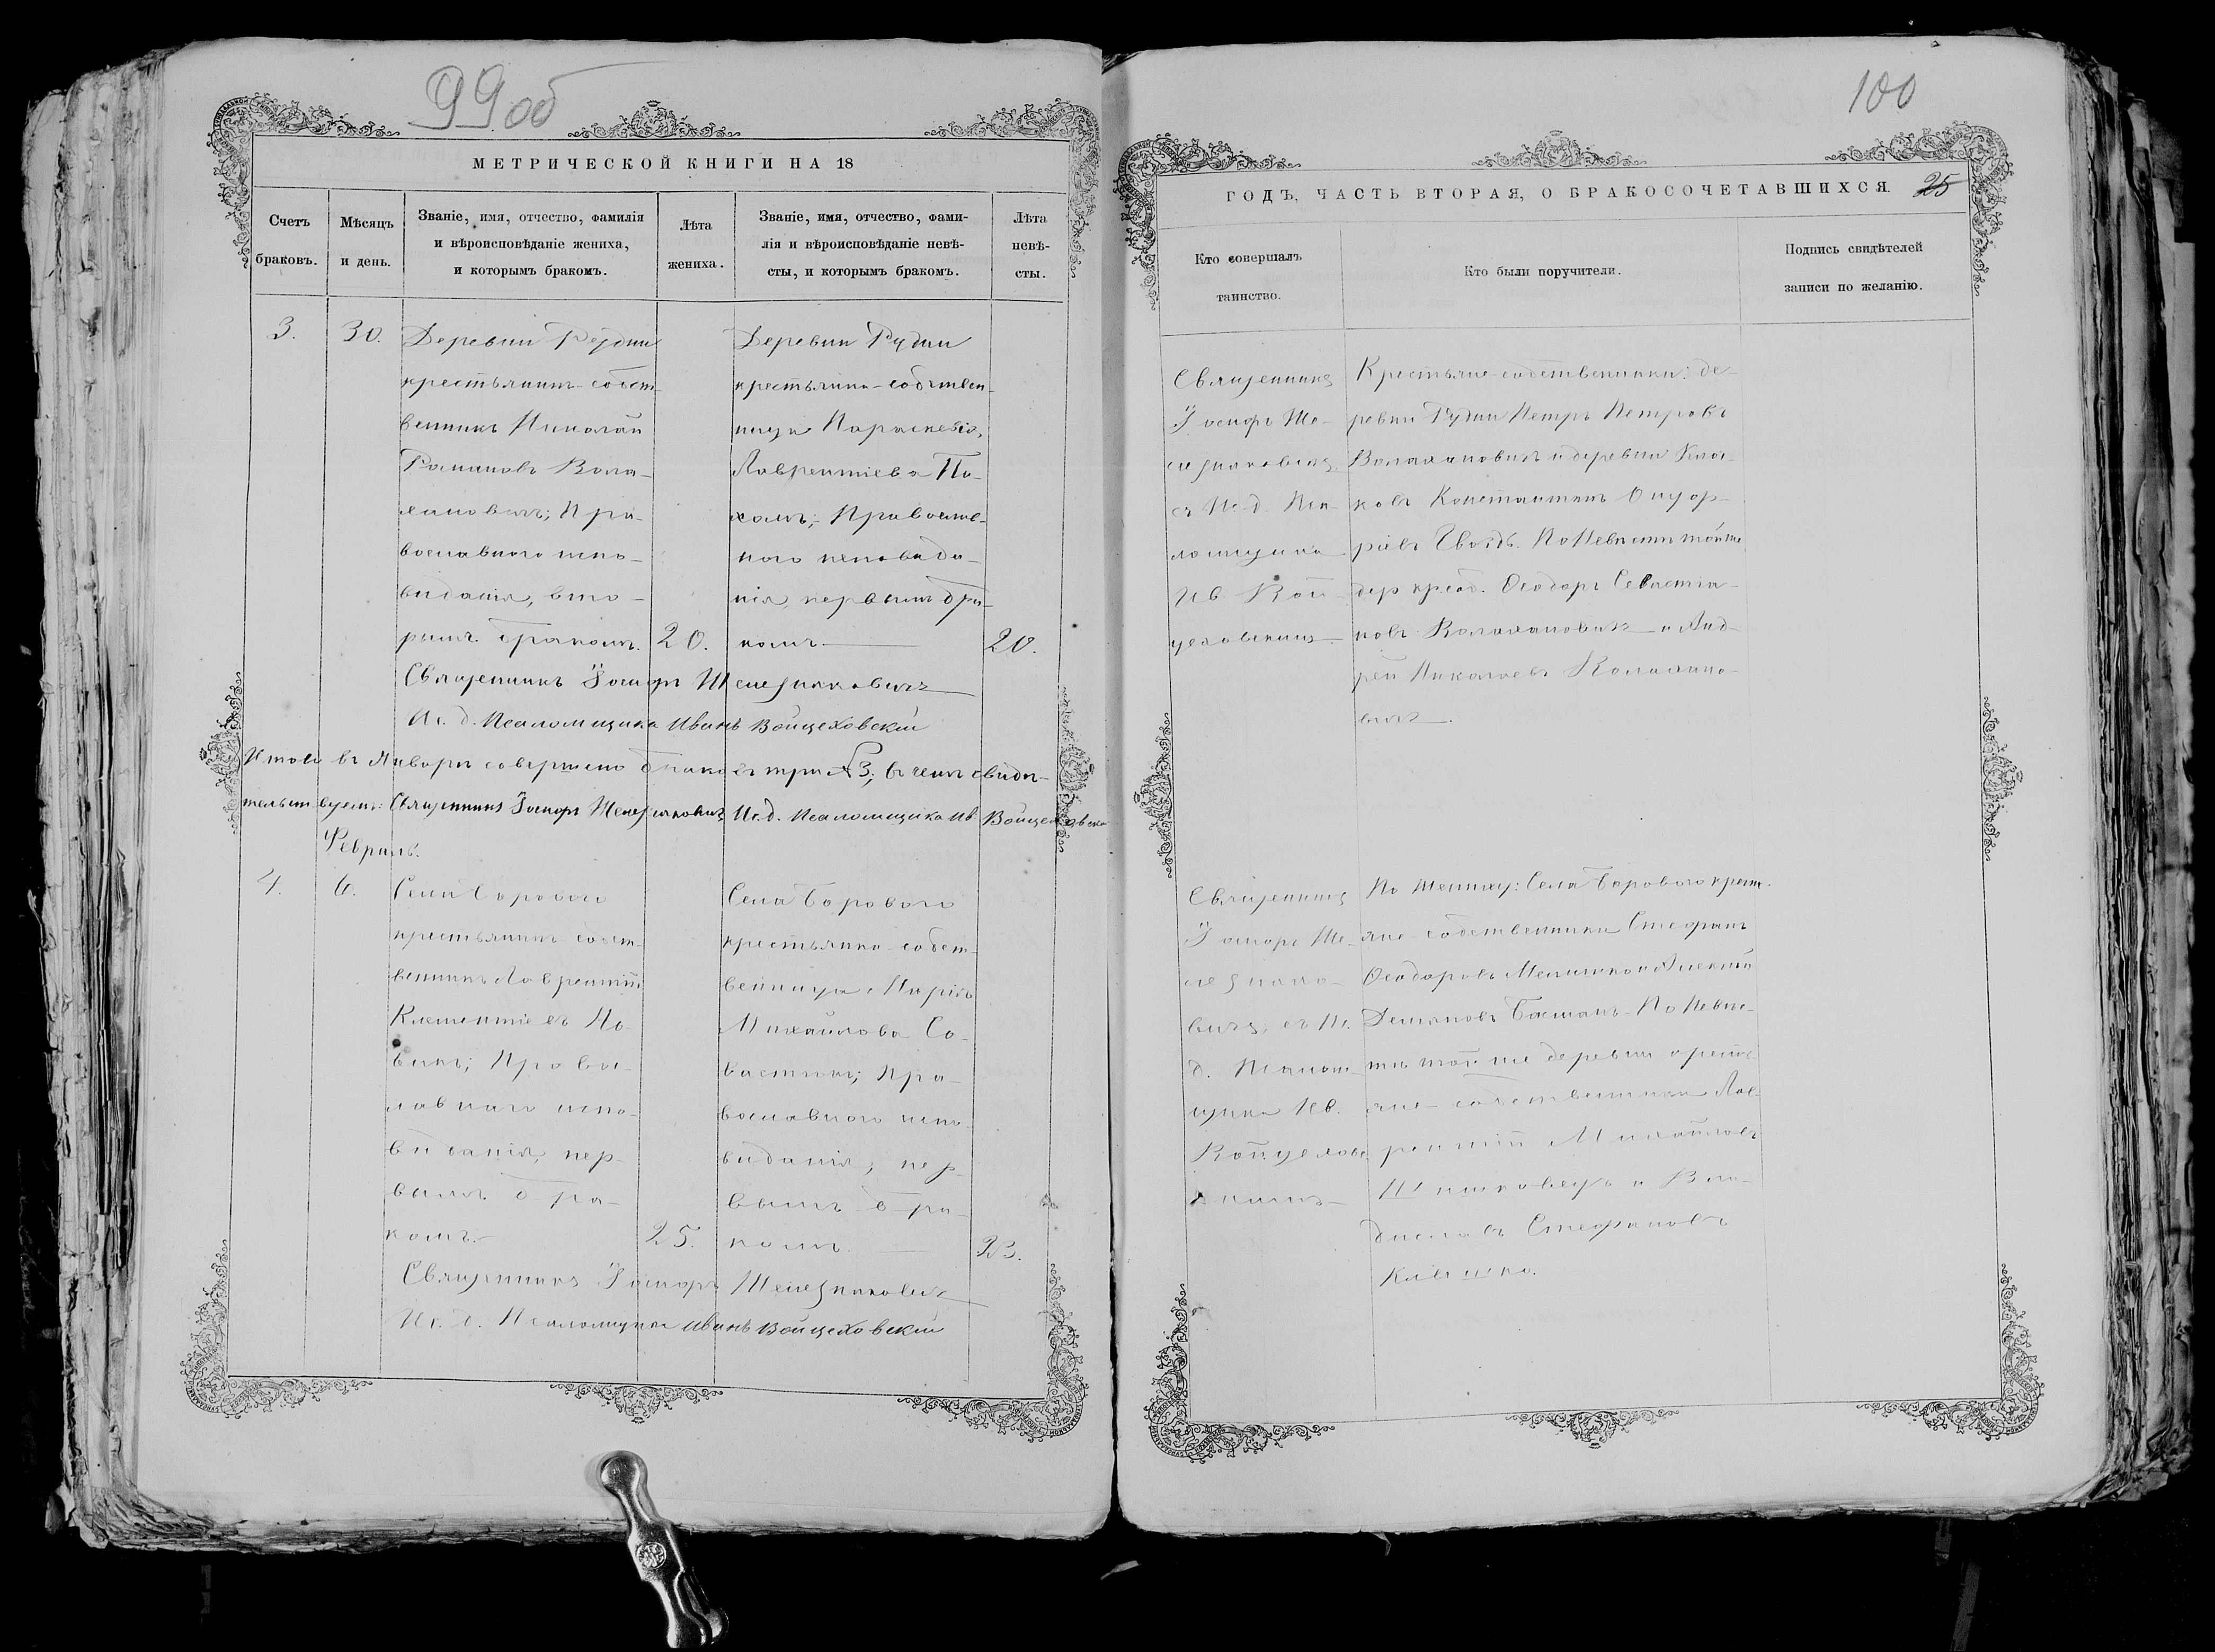 99об
МЕТРИЧЕСКОЙ КНИГИ НА 18
Счетъ браковъ.
Мѣсяцъ и день.
Званіе, имя, отчество, фамилія
и вѣроисповѣданіе жениха,
и которымъ бракомъ.
Лѣта жениха.
Званіе, имя, отчество, фами-
лія и вѣроисповѣданіе невѣ-
сты, и которымъ бракомъ.
Лѣта невѣ-
сты.
3.
30.
Деревни Рудни
крестьянинъ-собст-
венникъ Николай
Романовъ Вола-
хановичъ; Пра-
вославнаго испо-
вѣданія, вто-
рымъ бракомъ.
20.
Деревни Рудни
крестьянка-собствен-
ница Параскевія,
Лаврентіева По-
хомъ; Православ-
ного исповѣда-
нія, первымъ бра-
комъ
20.
Священникъ Іосифъ Железняковичъ
Ис. д. Псаломщика Иванъ Войцеховскій
Итого въ Январѣ совершено браковъ три №3; въ чемъ свидѣ-
тельствуемъ: Священникъ Іосифъ Железняковичъ Ис. д. Псаломщика Ив. Войцеховскій
Февраль.
4.
6.
Села Борового
крестьянинъ-собст-
венникъ Лаврентій
Климентіевъ Но-
викъ; Правос-
лавнаго испо-
вѣданія, пер-
вымъ бра-
комъ.
25.
Села Борового
крестьянка-собст-
венница Марія
Михайлова Со-
вастюкъ; Пра-
вославного испо-
вѣданія; пер-
вымъ бра-
комъ.
23.
Священникъ Іосифъ Железняковичъ
Ис. д. Псаломщика Иванъ Войцеховскій
100
ГОДЪ, ЧАСТЬ ВТОРАЯ, О БРАКОСОЧЕТАВШИХСЯ.
25
Кто совершалъ
таинство.
Кто были поручители.
Подпись свидѣтелей
записи по желанію.
Священникъ
Іосифъ Же-
лезняковичъ
съ Ис. д. Пса-
ломщика
Ив. Вой-
цеховскимъ
Крестьяне-собственники: де-
ревни Рудни Петръ Петровъ
Волахановичъ и деревни
Константинъ Онуф-
ріевъ Гвоздь. По Невѣстѣ той же
дер. Ѳеодоръ Севастіа-
новъ Волахановичъ и Анд-
рей Николаевъ Волахано-
вичъ.
Священникъ
Іосифъ Же-
лезняко-
вичъ, съ Ис.
д. Псалом-
щика Ив.
Войцеховс-
кимъ
По Жениху: Села Борового крест-
яне-собственники Стефанъ
Ѳеодоровъ и Алексѣй
Демяновъ По Невѣс-
тѣ той же деревни крест-
яне-собственники Лав-
рентій Михайловъ
и Вла-
диславъ Стефановъ